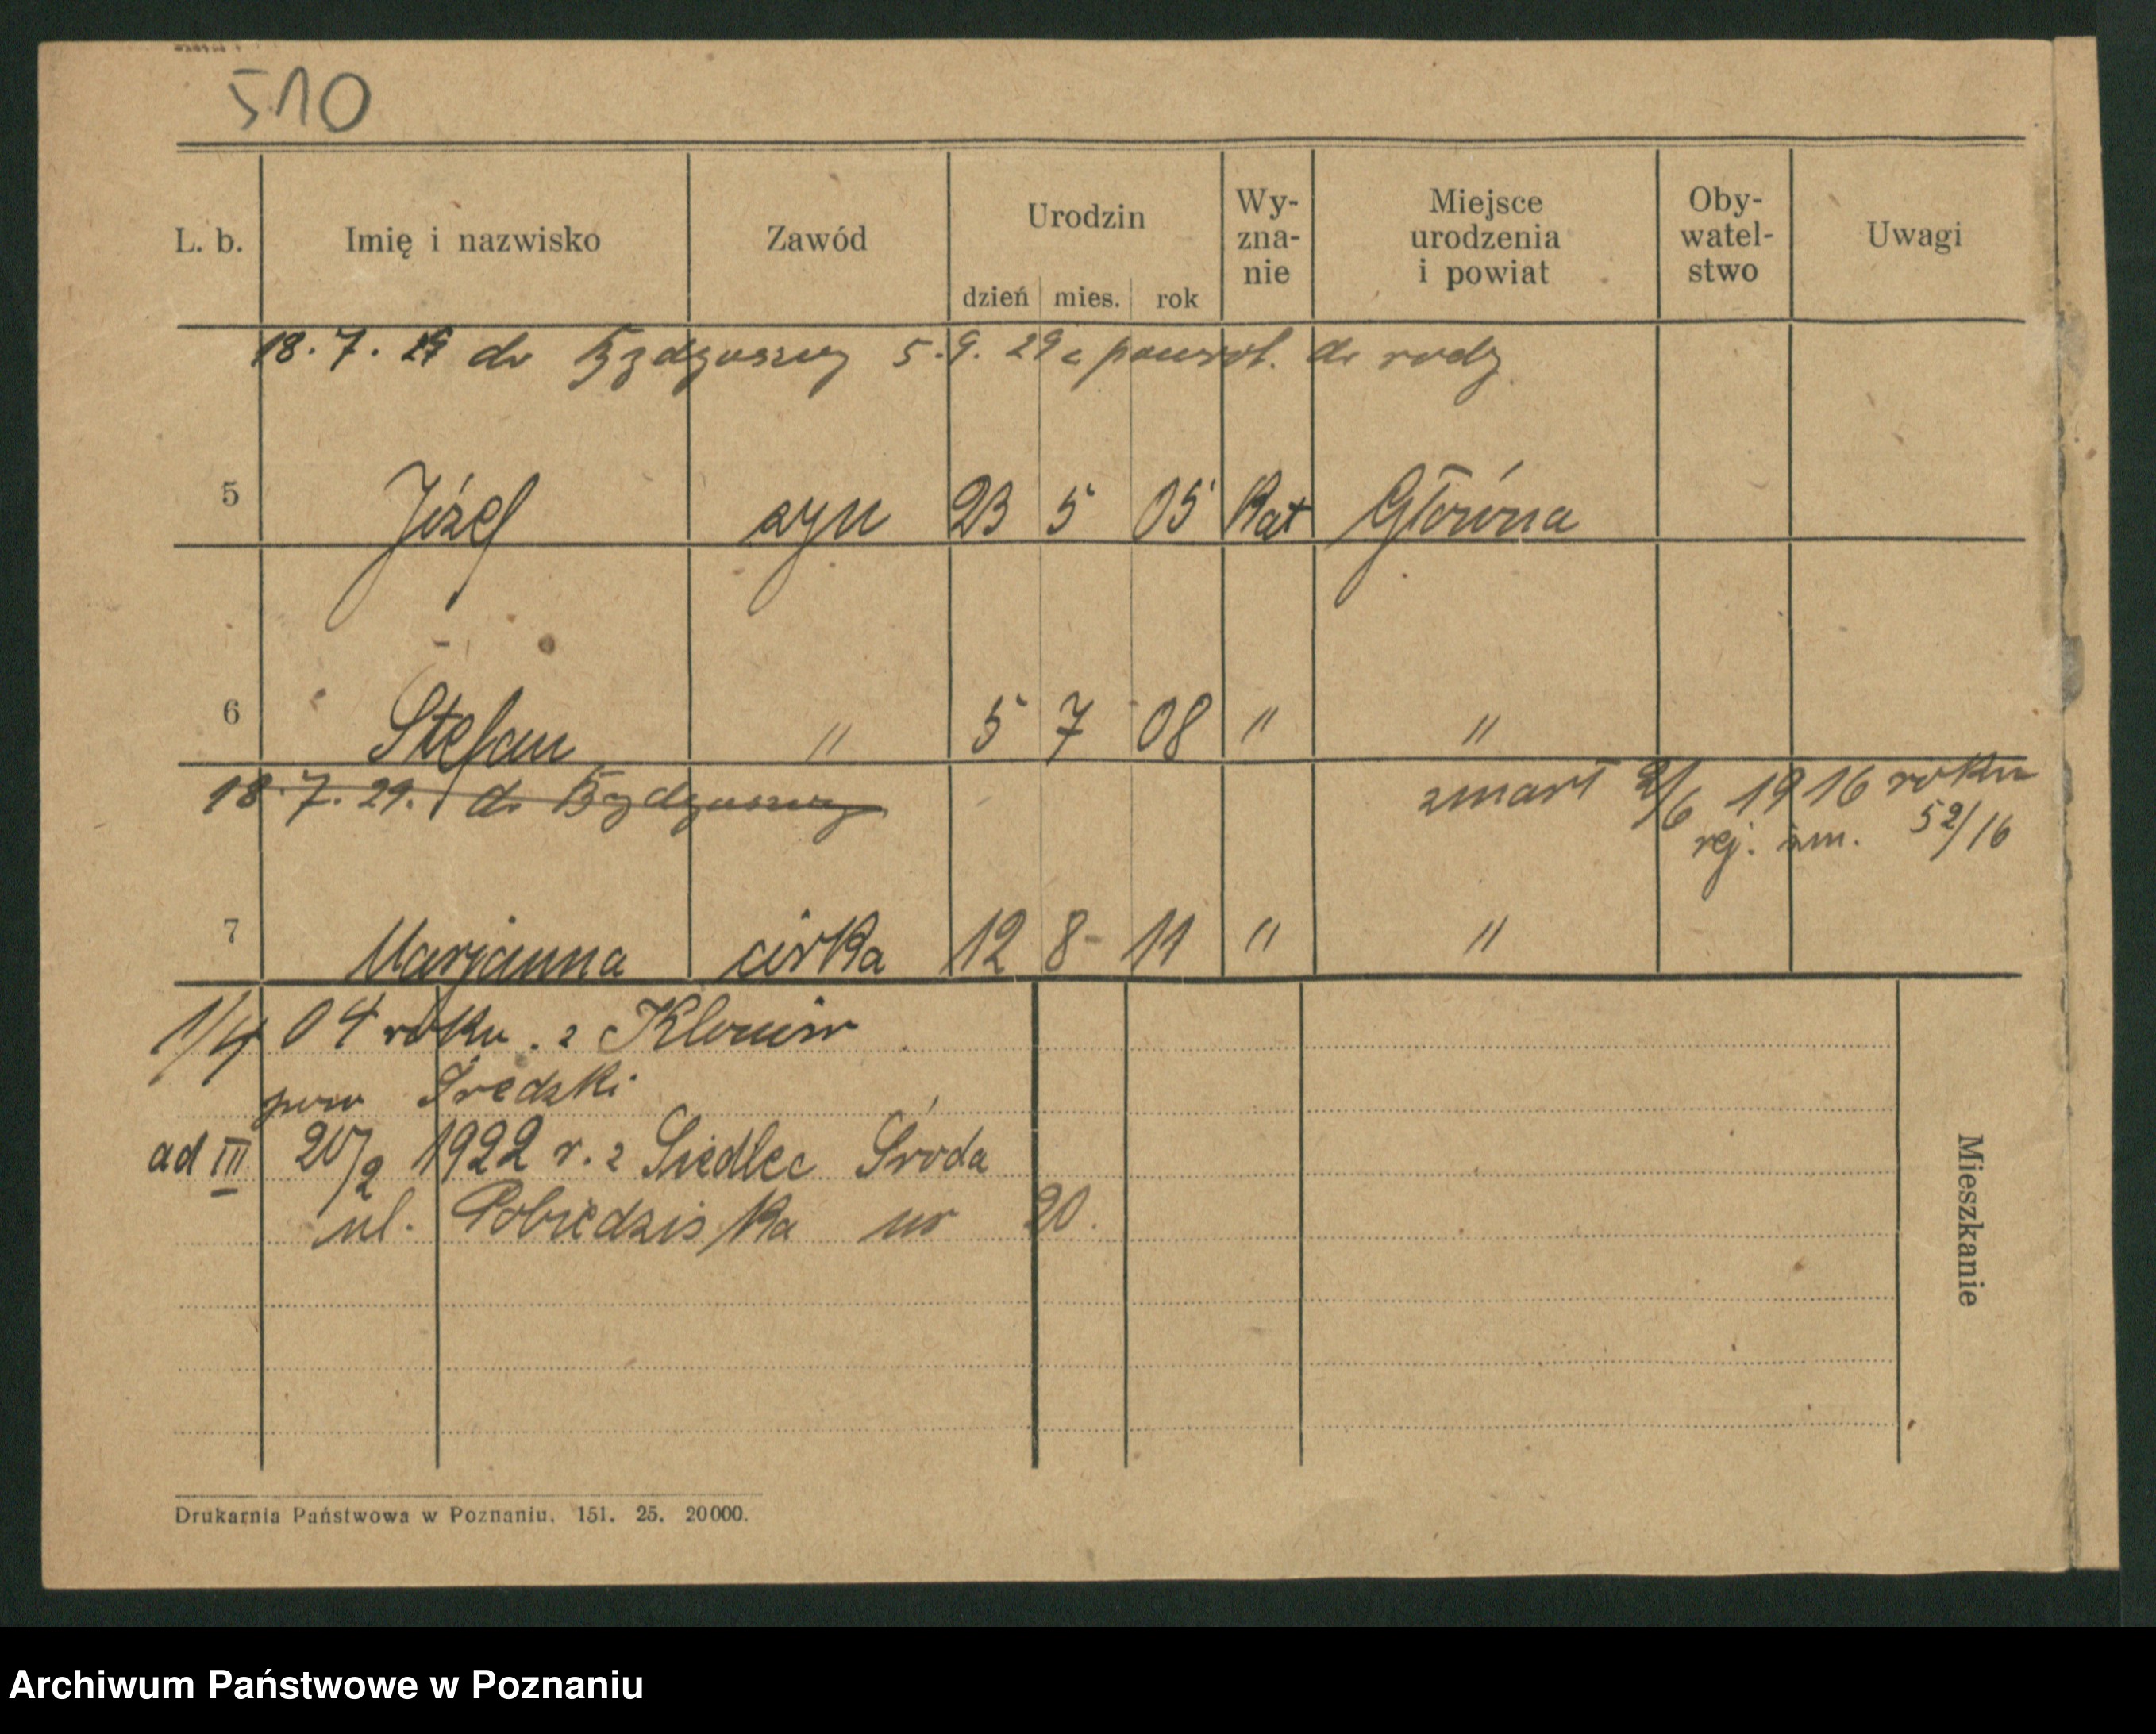 510
L. b. Imię i nazwisko Zawód Urodzin dzień mies. rok Wy-zna-nie Miejsce urodzenia i powiat Oby-watel-stwo Uwagi
18. 7. 29 do Bydgoszczy 5. 9. 29 z powrot. do rodz
5 Józef syn 23 5 05 Kat Główna
6 Stefan " 5 7 08 " "
18. 7. 29. do Bydgoszczy
zmarł 2/6 1916 roku
rej. zm. 52/16
7 Marjanna córka 12 8 11 " "
1/4 04 roku. z
pow Średzki
ad III 20/2 1922 r. z Siedlec Środa
ul. Pobiedziska nr 20.
Mieszkanie
Drukarnia Państwowa w Poznaniu. 151. 25. 20000.
Archiwum Państwowe w Poznaniu